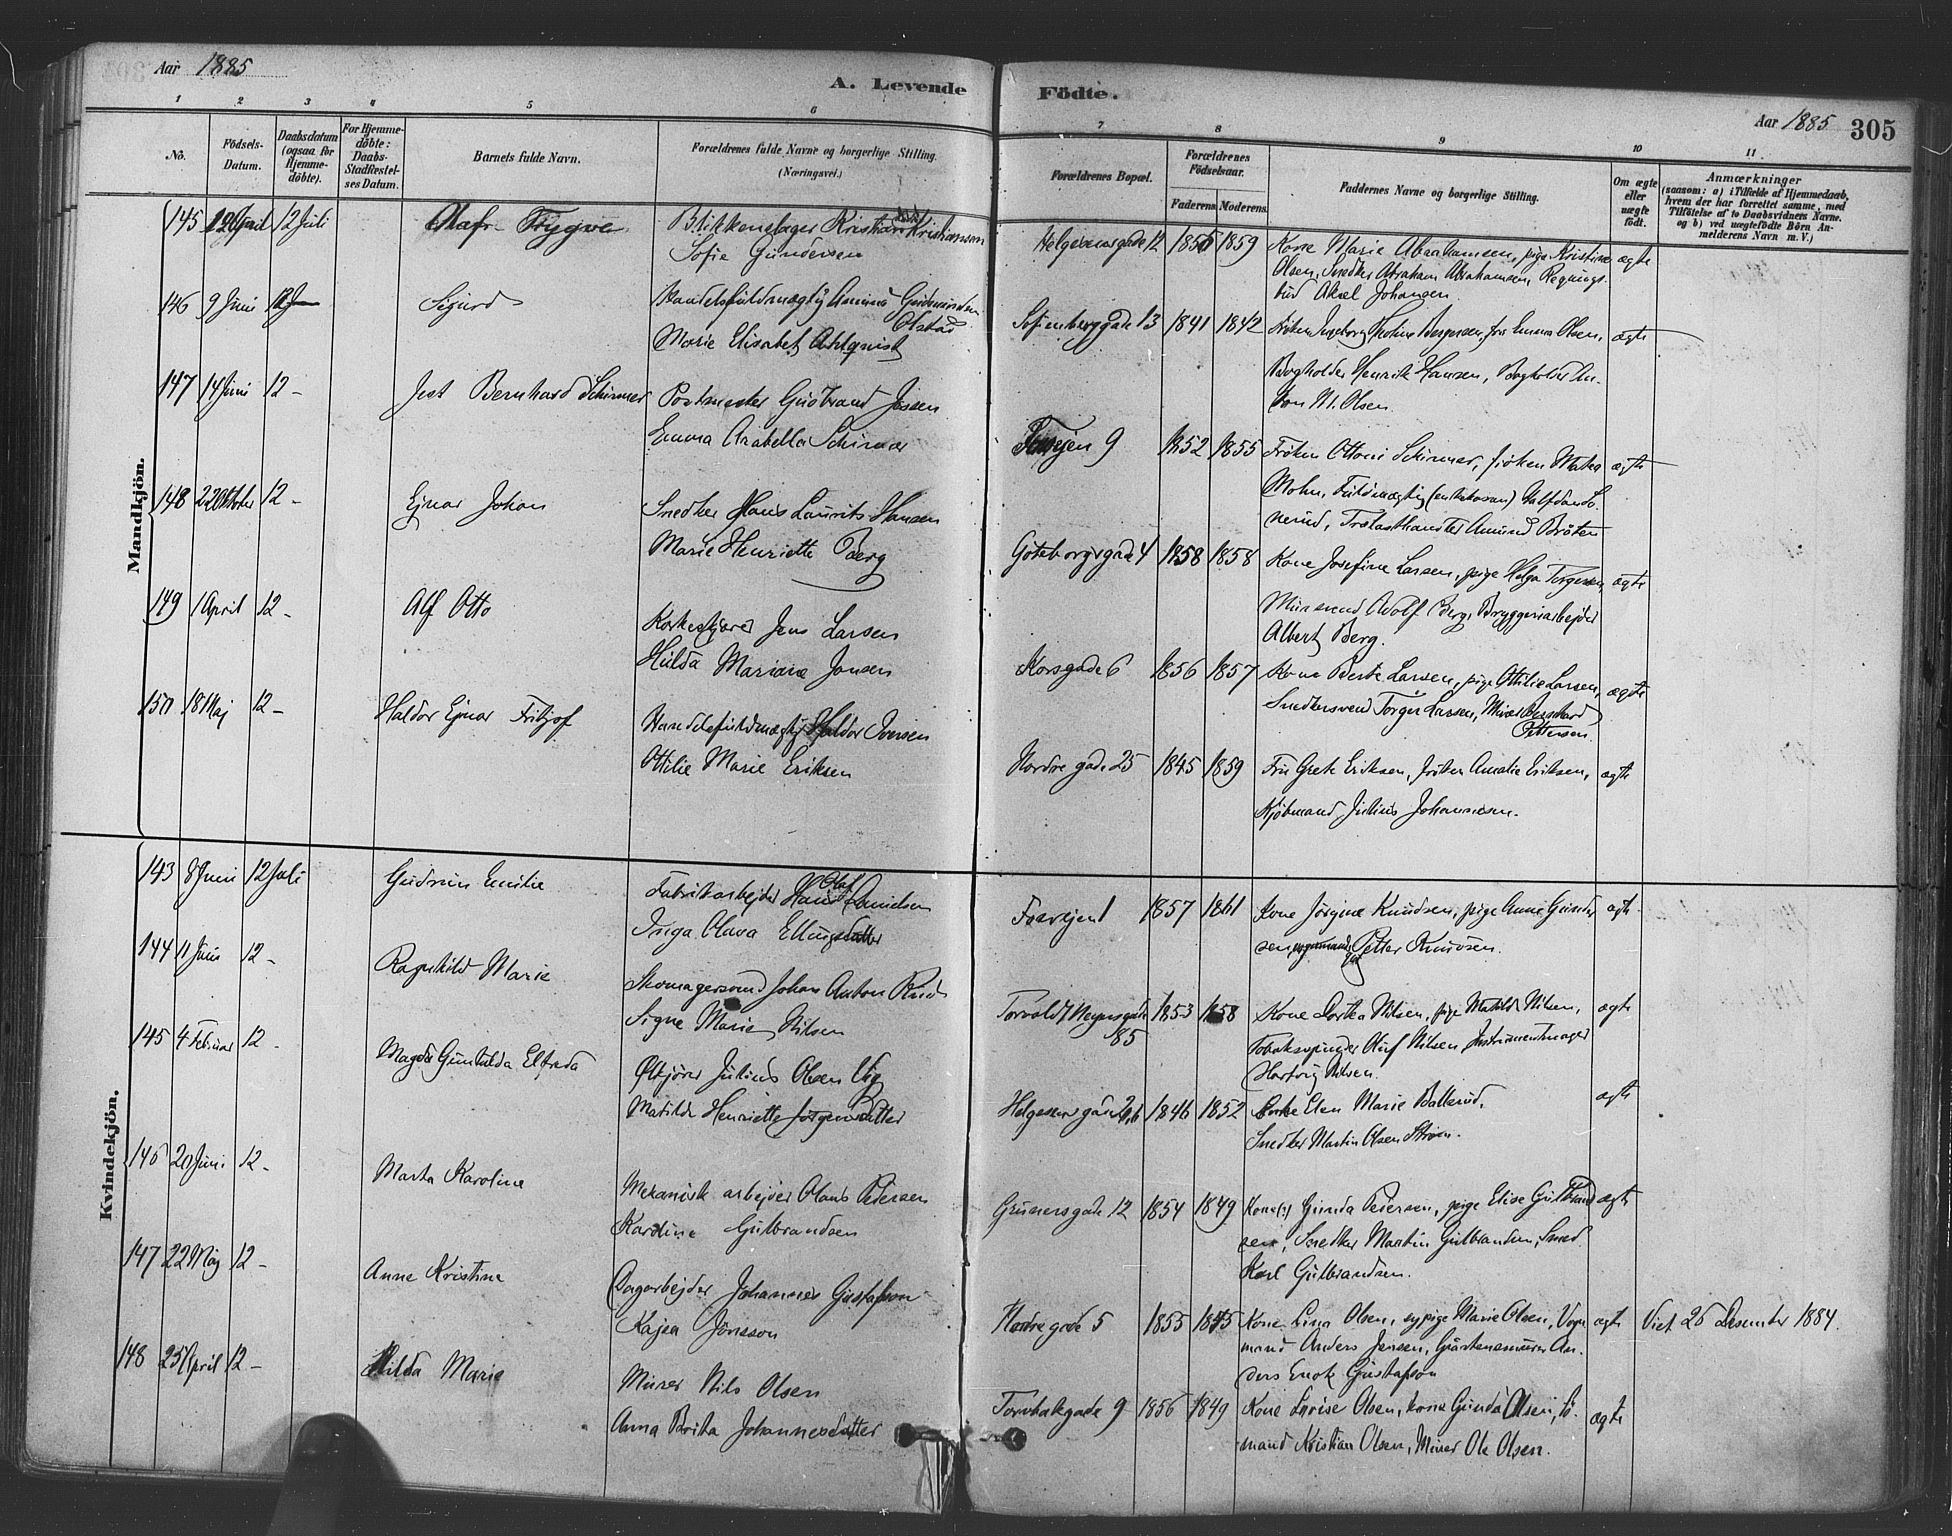 Aar 1885
A. Levende
Födte.
Aar 1885 305
1 2 3 4 5 6 7 8 9 10 11
No.
Födsels-Datum.
Daabsdatum (ogsaa for Hjemme-döbte).
For Hjemme-döbte: Daabs-Stadfæstel-ses Datum.
Barnets fulde Navn.
Forældrenes fulde Navne og borgerlige Stilling. (Næringsvei.)
Forældrenes Bopæl.
Forældrenes Fødselsaar.
Faderens Moderens
Faddernes Navne og borgerlige Stilling.
Om ægte eller uægte födt.
Anmærkninger
(saasom: a) i Tilfælde af Hjemmedaab,
hvem der har forrettet samme, med
Tilföielse af to Daabsvidners Navne.
og b) ved uægtefödte Börn An-
melderens Navn m. V.)
Mandkjön.
145 12 April 12 Juli Olaf Trygve Blikkenslager Kristian Kristiansen
Sofie Gundersen
Helgesensgade 12 1856 1859 Kone Marie Abrahamsen, pige Kristine ægte
Olsen, Snedker Abraham Abrahamsen, Regnings-
bud Aksel Johansen
146 9 Juni 12 Sigurd Handelsfuldmægtig Amund Gudmundsen
Olstad
Marie Elisabet Ahlqvist
Sofienberggade 13 1841 1842 Frøken Ingeborg Torgersen, fru Emma Olsen, ægte
Bogholder Henrik Hansen, Bogholder An-
ton M. Olsen
147 14 Juni 12 - Just Bernhard Schirmer Postmester Gudbrand Jensen
Emma Arabella Schirmer
9 1852 1855 Frøken Ottoni Schirmer, frøken Marka ægte
Mohn, Fuldmægtig Halfdan L.
nerud, Trælasthandler Amund Bråten
148 22 Oktober 12 - Ejnar Johan Snedker Hans Laurits Hansen
Marie Henriette Berg
Göteborggade 4 1858 1858 Kone Josefine Larsen, pige Helga Torgersen, ægte
Murersvend Adolf Berg, Bryggeriarbejder
Albert Berg.
149 1 April 12 - Alf Otto Korkeskjærer Jens Larsen
Hulda Mariane Jansen
Korsgade 6 1856 1857 Kone Berte Larsen, pige Ottilie Larsen, ægte
Snedkersvend Torger Larsen, Murer
Pettersen.
150 18 Maj 12 - Haldor Ejnar Fritjof Handelsfuldmægtig Haldor Iversen
Ottilie Marie Eriksen
Nordre gade 25 1845 1859 Fru Grete Eriksen, frøken Amalie Eriksen, ægte
Kjöbmand Julius Johannesen.
Kvindekjön.
143 8 Juni 12 Juli Gudrun Emilie Fabrikarbejder Hans Olaf Danielsen
Inga Olava Ellingsdatter
Fossvejen 1 1857 1861 Kone Jørgine Knudsen, pige Anne Gunder ægte
sen, Petter Knudsen.
144 11 Juni 12 - Ragnhild Marie Skomagersvend Johan Anton Ruud
Signe Marie Nilsen
Torvald Meyersgade
85 1853 1858 Kone Dorthea Nilsen, pige Matilde Nilsen, ægte
Tobakspinder Oluf Nilsen Instrumentmager
Hartvig Nilsen.
145 4 Februar 12 - Magda Gunhilda Elfreda Ølkjører Julius Olsen Vig
Matilde Henriette Jørgensdatter
Helgesensgade 1846 1852 Enke Elen Marie Ballerud, ægte
Snedker Martin Olsen Strøm.
146 20 Juni 12 - Marta Karoline Mekanisk arbejder Olaus Pedersen
Karoline Gulbrandsen
Grunersgade 12 1854 1849 Kone Gunda Pedersen, pige Elise Gulbrand ægte
sen, Snedker Martin Gulbrandsen, Smed
Karl Gulbrandsen.
147 22 Maj 12 - Anne Kristine Dagarbejder Johannes Gustafson
Kajsa Jönsson
Nordre gade 5 1855 1855 Kone Lina Olsen, sypige Marie Olsen, Vogn ægte Viet 26 Desember 1884.
mand Anders Jensen, An-
ders Enok Gustafson
148 25 April 12 - Hilda Marie Murer Nils Olsen
Anna Brita Johannesdatter
Torvbakgade 9 1856 1849 Kone Lovise Olsen, kone Gunda Olsen, Sö- ægte
mand Kristian Olsen, Murer Ole Olsen.